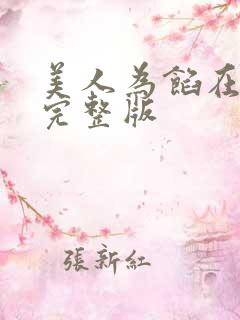 美人為餡在
完整版
張新紅